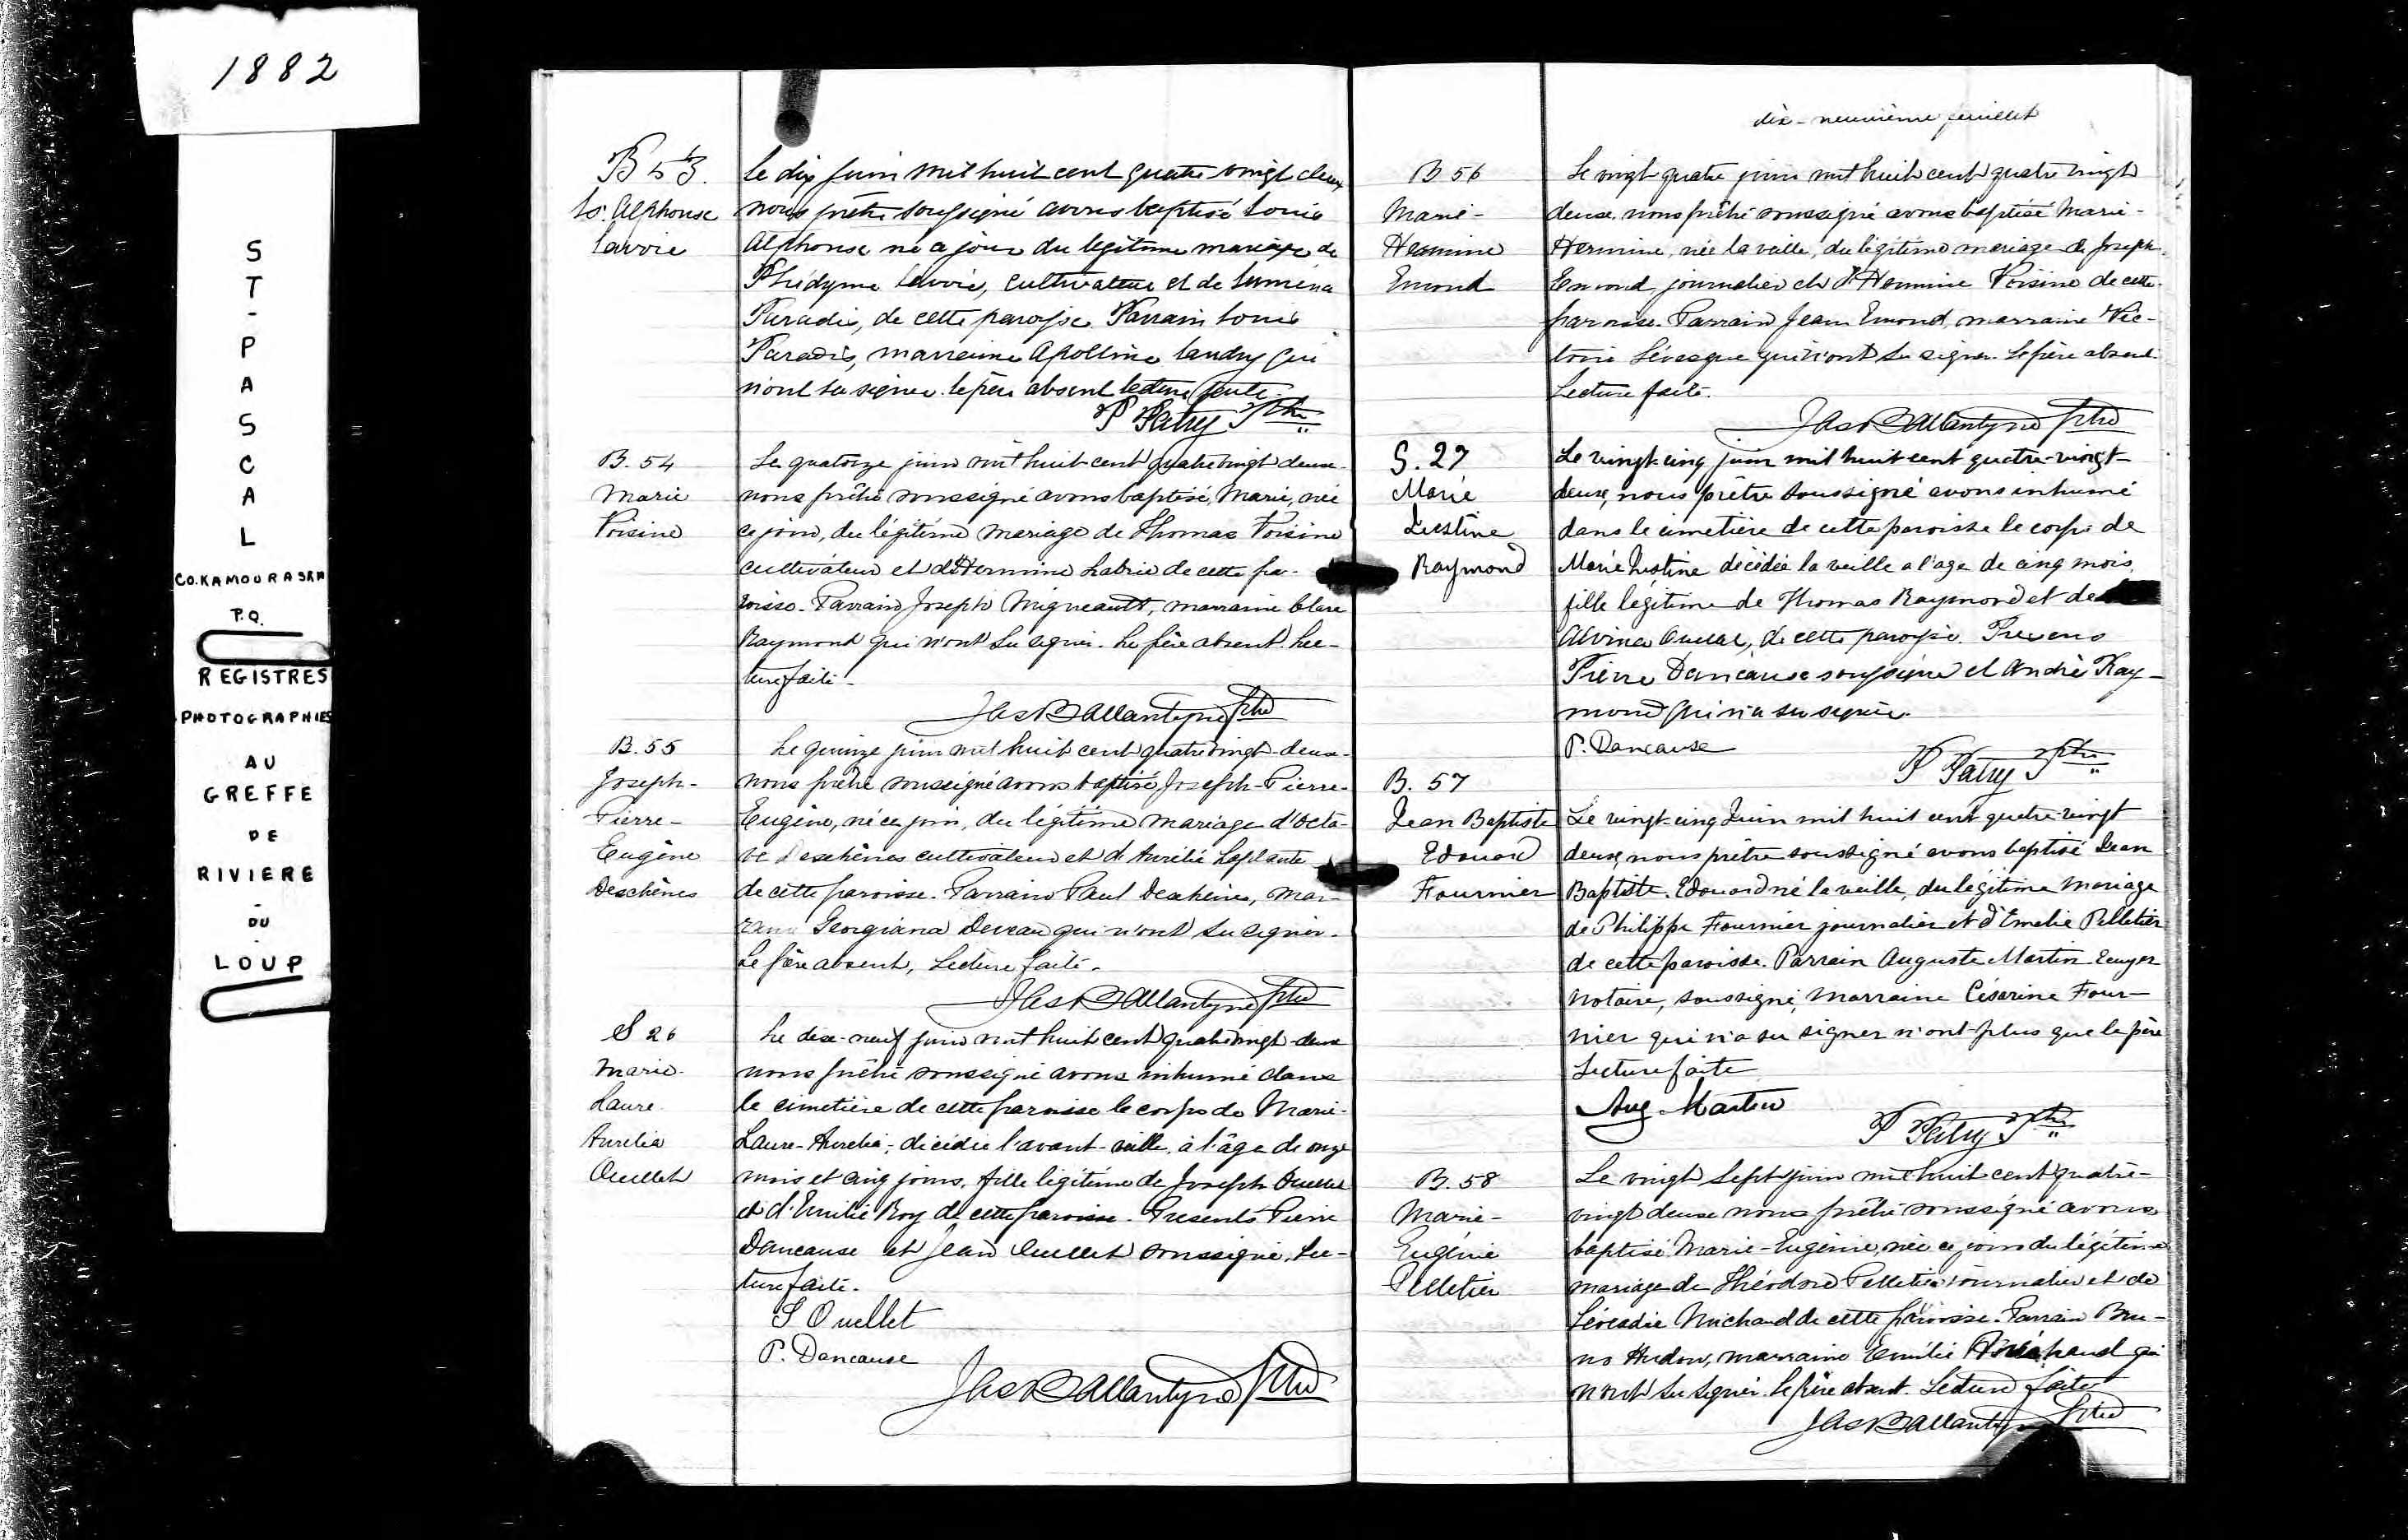 1882
S
T
-
P
A
S
C
A
L
CO. KAMOURASKA
P.Q.
REGISTRES
PHOTOGRAPHIES
AU
GREFFE
DE
RIVIERE
-
DU
-
LOUP
B 53.
Ls. Alphonse
Lavoie
Le dix juin mil huit cent quatre vingt deux
nous prêtre soussigné avons baptisé Louis
Alphonse né ce jour du légitime mariage de
Phidyme Lavoie, cultivateur et de Luména
Paradis, de cette paroisse. Parrain Louis
Paradis, marraine Apolline Landry qui
n'ont su signer. le père absent lecture faite.
P Patry Ptre
B. 54
Marie
Voisine
Le quatorze juin mil huit cent quatre vingt deux
nous prêtre soussigné avons baptisé, Marie, née
ce jour, du légitime mariage de Thomas Voisine
cultivateur et d'Hermine Labrie de cette pa-
roisse. Parrain Joseph Migneault, marraine Clare
Raymond qui n'ont su signer. Le père absent. Lec-
ture faite.
Jas Ballantyne Ptre
B. 55
Joseph-
Pierre-
Eugène
Deschênes
Le quinze juin mil huit cent quatre vingt-deux
nous prêtre soussigné avons baptisé, Joseph-Pierre-
Eugène, né ce jour, du légitime mariage d'Octa-
ve Deschênes cultivateur et d'Aurélie Laplante
de cette paroisse. Parrain Paul Deschênes, mar-
raine Georgiana Deveau qui n'ont su signer.
Le père absent, Lecture faite.
Jas Ballantyne Ptre
S 26
Marie-
Laure
Aurelia
Ouellet
Le dix-neuf juin mil huit cent quatre vingt-deux
nous prêtre soussigné avons inhumé dans
le cimetière de cette paroisse le corps de Marie-
Laure-Aurelia, décédée l'avant-veille, à l'âge de onze
mois et cinq jours, fille légitime de Joseph Ouellet
et d'Emilie Roy de cette paroisse. Présents Pierre
Dancause et Jean Ouellet soussigné. Lec-
ture faite.
J Ouellet
P. Dancause
Jas Ballantyne Ptre
dix-neuvième feuillet
B 56
Marie-
Hermine
Emond
Le vingt quatre juin mil huit cent quatre vingt
deux, nous prêtre soussigné avons baptisé Marie-
Hermine, née la veille, du légitime mariage de Joseph
Emond journalier et d'Hermine Voisine de cette
paroisse. Parrain Jean Emond, marraine Vic-
toire Lévesque qui n'ont su signer. Le père absent.
Lecture faite.
Jas Ballantyne Ptre
S. 27
Marie
Justine
Raymond
Le vingt-cinq juin mil huit cent quatre-vingt-
deux, nous prêtre soussigné avons inhumé
dans le cimetière de cette paroisse le corps de
Marie Justine décédée la veille a l'age de cinq mois,
fille légitime de Thomas Raymond et de
Alvina Ouellet, de cette paroisse. Présens
Pierre Dancause soussigné et André Ray-
mond qui n'a su signer.
P. Dancause
P Patry Ptre
B. 57
Jean Baptiste
Edouard
Fournier
Le vingt-cinq Juin mil huit cent quatre-vingt
deux, nous prêtre soussigné avons baptisé Jean
Baptiste Edouard né la veille, du légitime mariage
de Philippe Fournier journalier et d'Emelie Pelletier
de cette paroisse. Parrain Auguste Martin Ecuyer
Notaire, soussigné, Marraine Césarine Four-
nier qui n'a su signer n'ont plus que le père
Lecture faite
Aug. Martin
P Patry Ptre
B. 58
Marie-
Eugénie
Pelletier
Le vingt sept juin mil huit cent quatre-
vingt deux nous prêtre soussigné avons
baptisé Marie-Eugénie, née ce jour du légitime
mariage de Théodore Pelletier journalier et de
Léocadie Michaud de cette paroisse. Parrain Bru-
no Hudon, marraine Emilie Michaud qui
n'ont su signer. Le père absent. Lecture faite
Jas Ballantyne Ptre